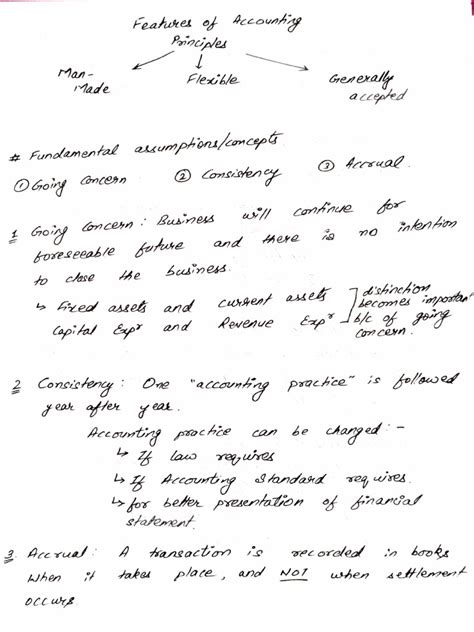 Features of Accounting
Principles
Man-
Made
Flexible
Generally
accepted
# Fundamental assumptions/concepts
① Going Concern ② Consistency ③ Accrual
1 Going Concern : Business will continue for
foreseeable future and there is no intention
to close the business.
↳ Fixed assets and current assets
Capital Expr and Revenue Expr
distinction
becomes important
b/c of going
concern.
2 Consistency : One "accounting practice" is followed
year after year.
Accounting practice can be changed : -
↳ If law requires
↳ If Accounting Standard requires.
↳ for better presentation of financial
statement.
3 Accrual : A transaction is recorded in books
when it takes place, and NOT when settlement
occurs